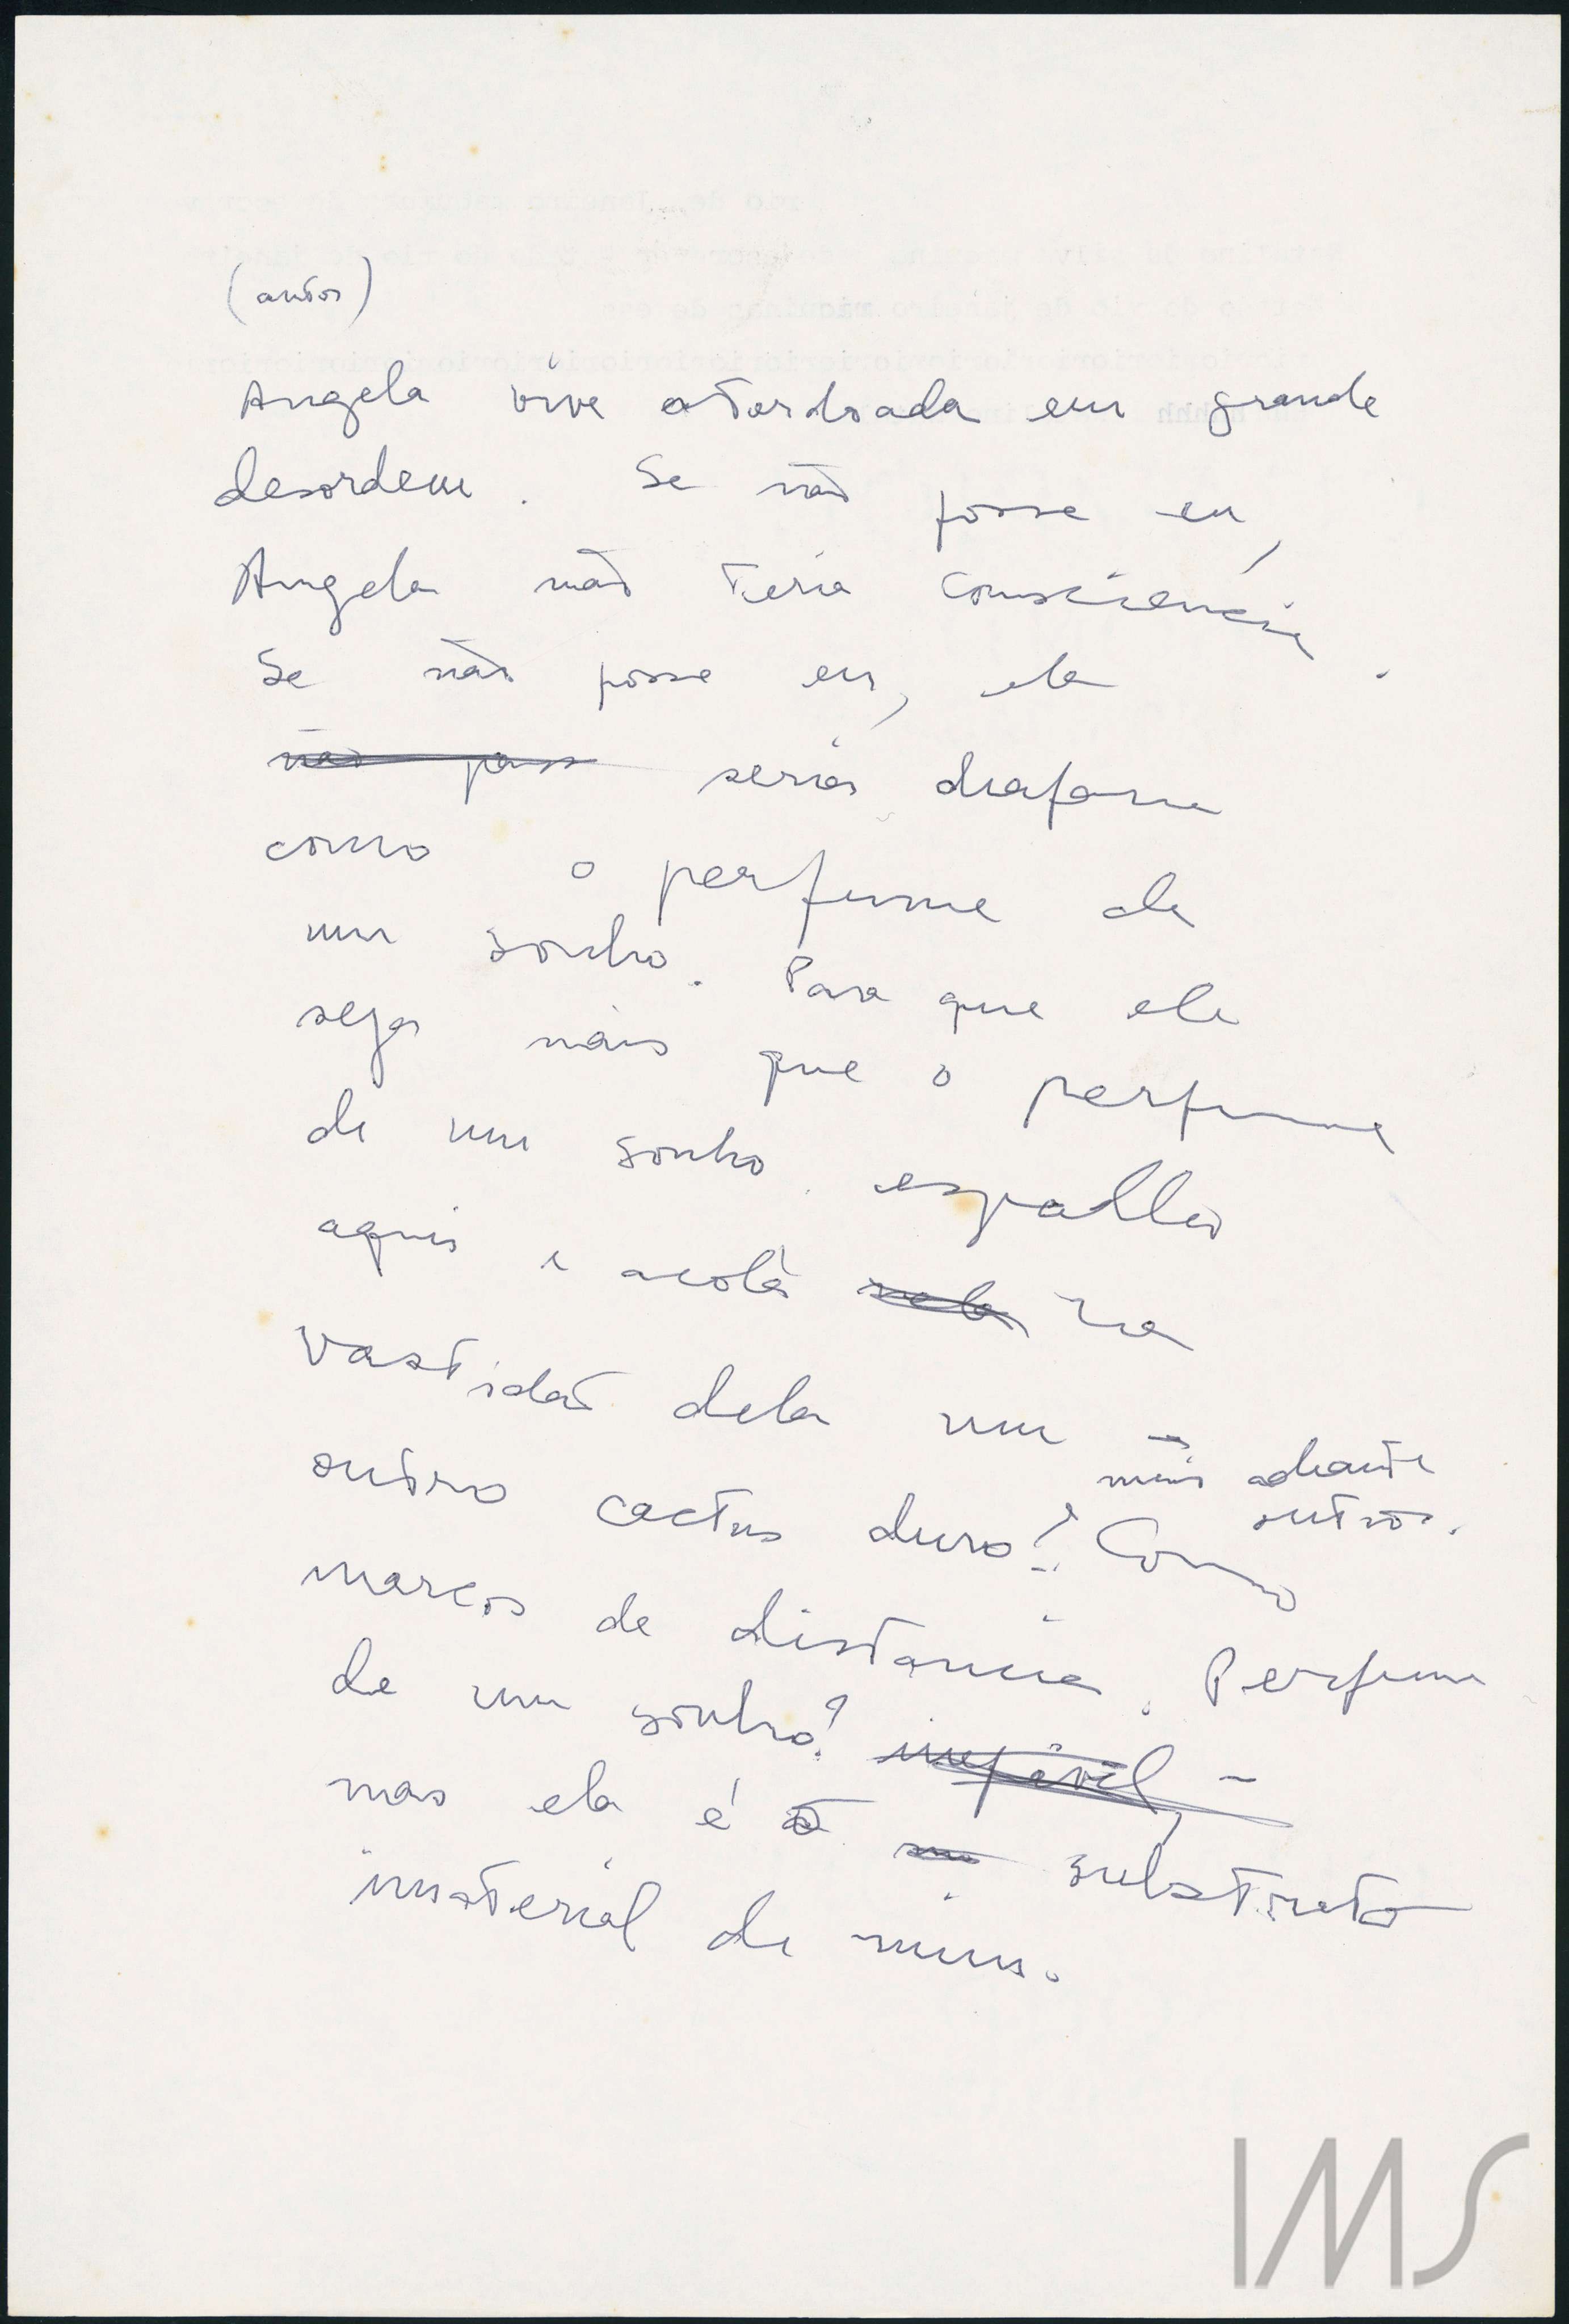 (autor)
Angela vive atordoada em grande
desordem. Se não fosse eu,
Angela não teria consciência.
Se não fosse eu, ela
não pass seria diafana
como o perfume de
um sonho. Para que ela
seja mais que o perfume
de um sonho, espalho
aqui e acolá nela na
vastidão dela um e
mais adiante
outro cactus duro! Como
outros.
marcos de distancia. Perfume
de um sonho?
mas ela é o substrato
imaterial de mim.
IMS